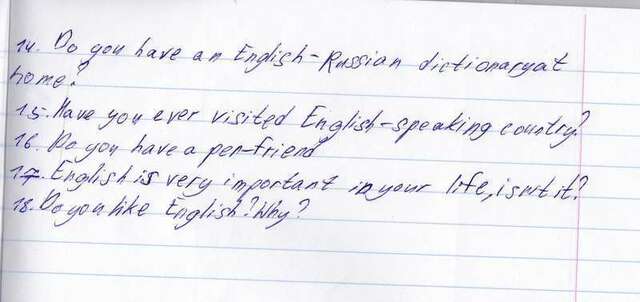 14. Do you have an English-Russian dictionary at
home?
15. Have you ever visited English-speaking country?
16. Do you have a pen-friend
17. English is very important in your life, isn't it?
18. Do you like English? Why?